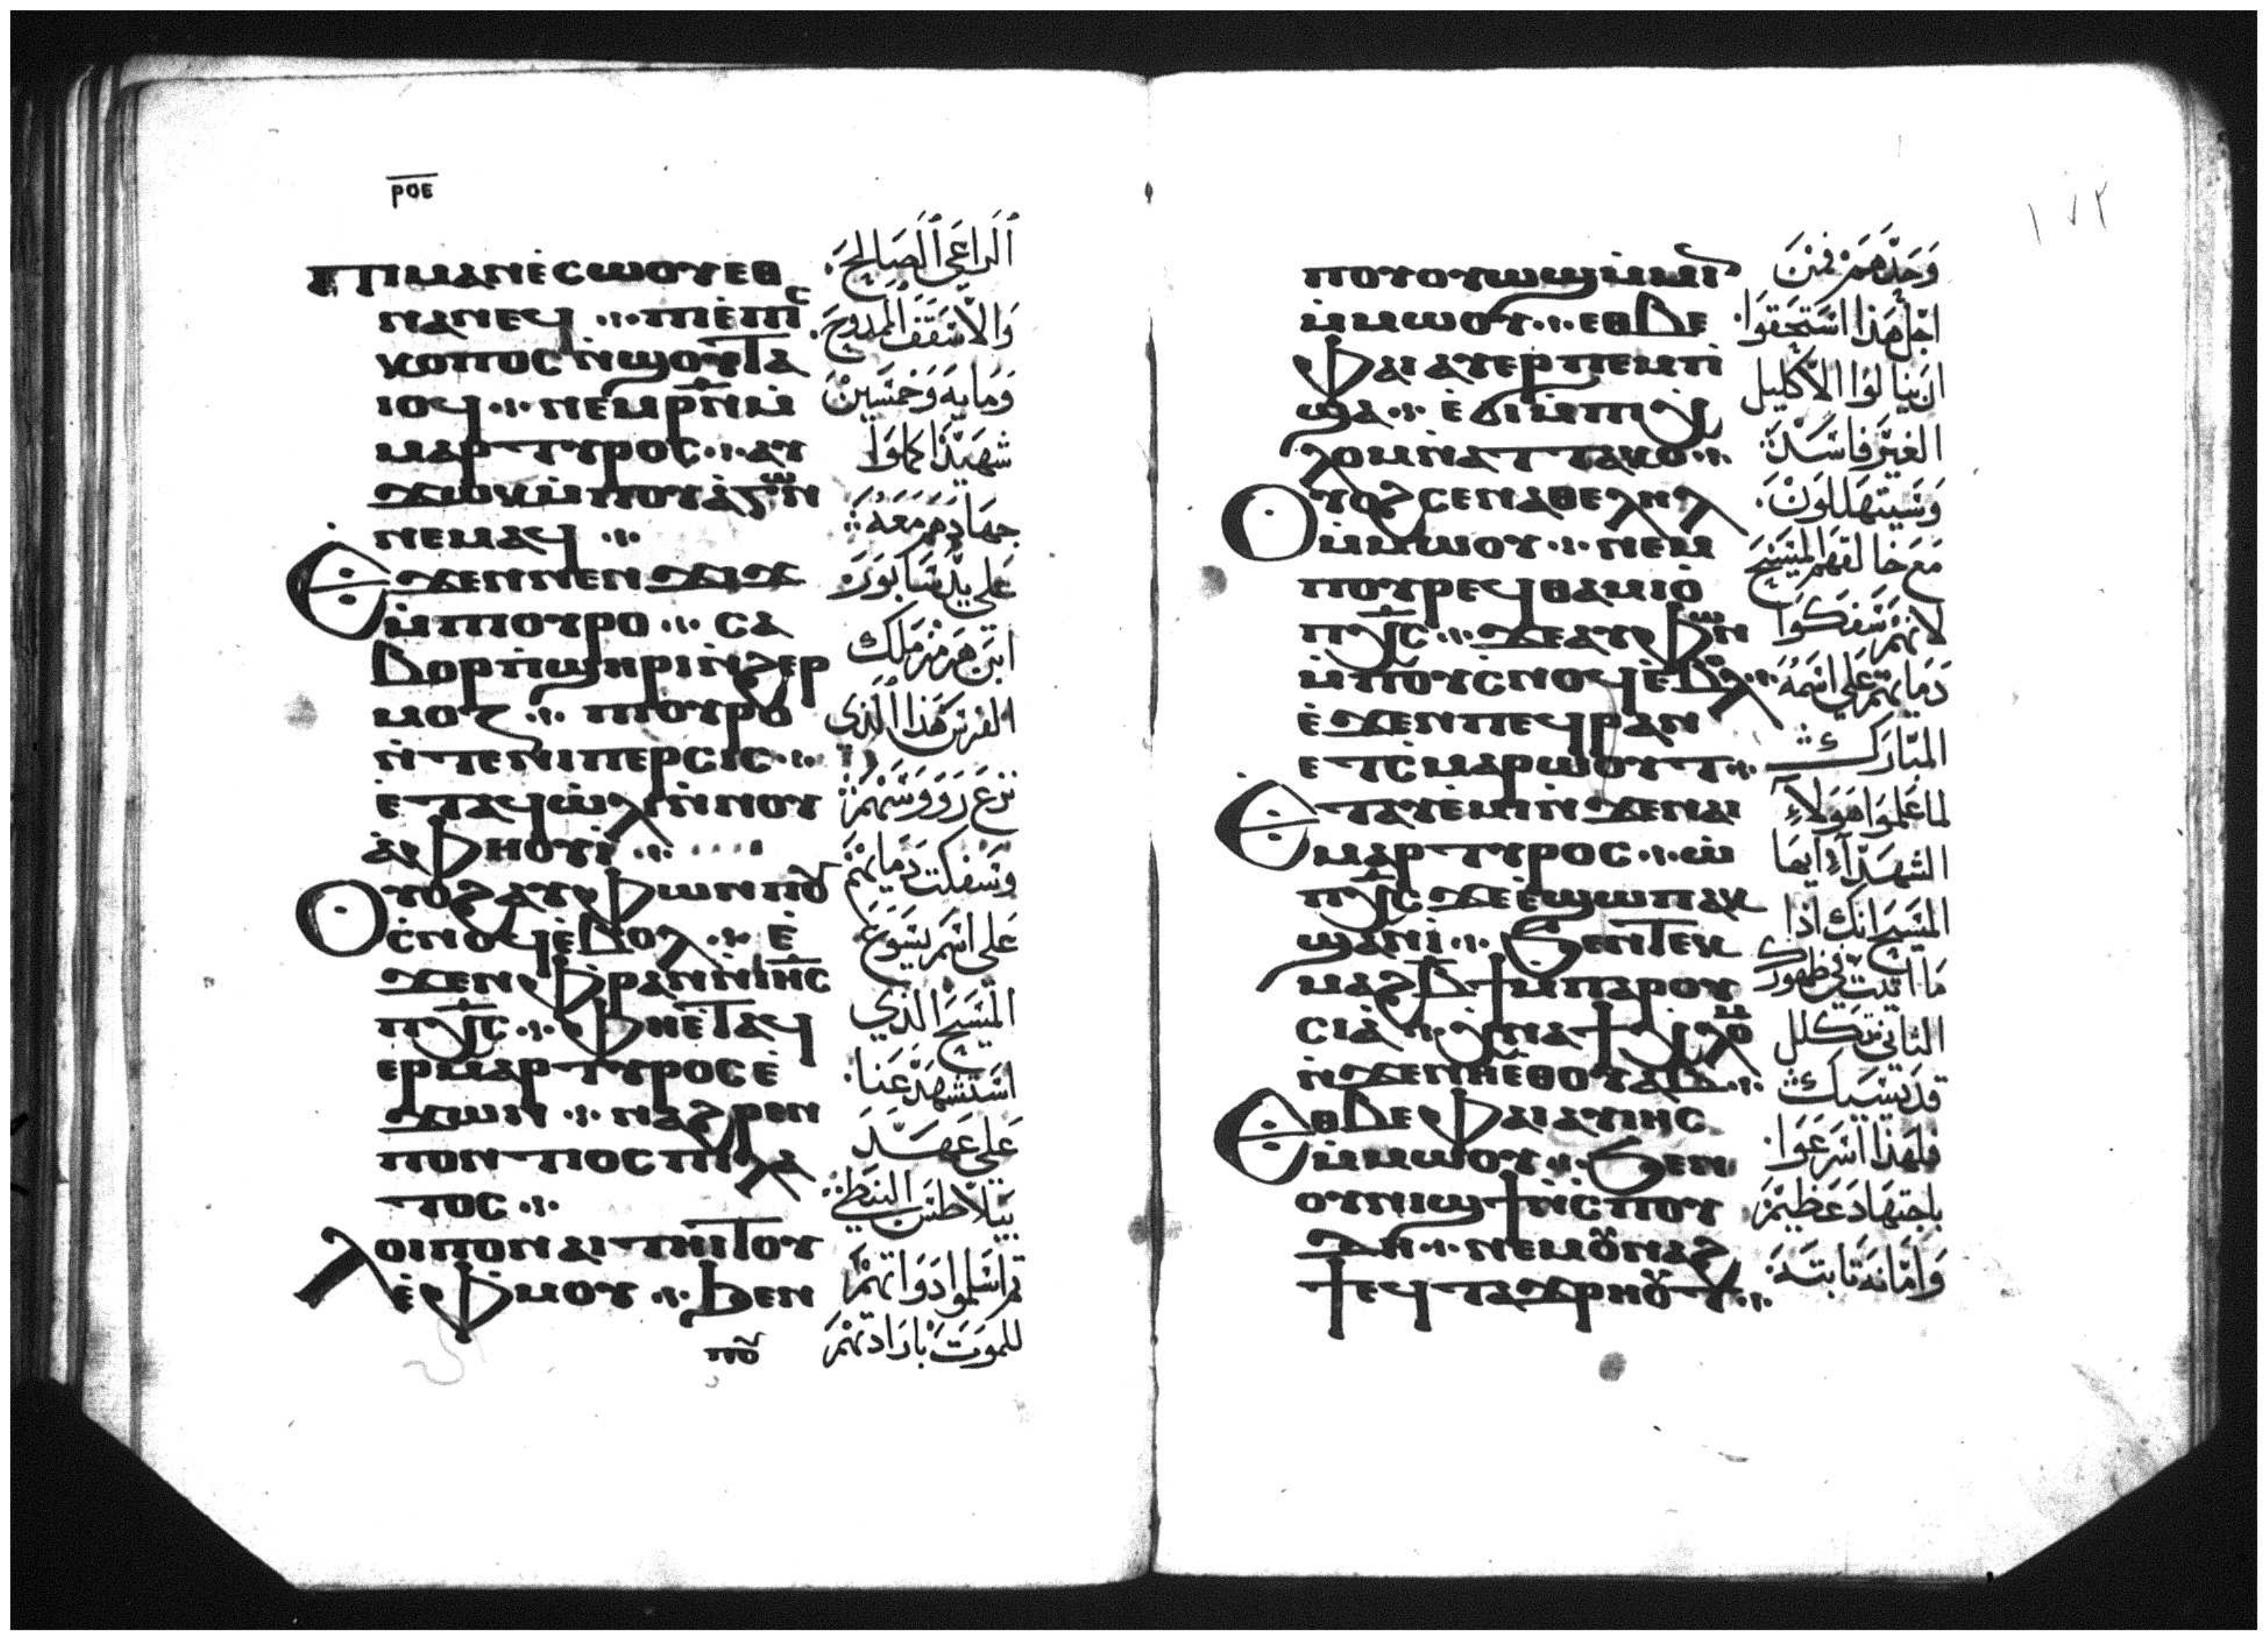 ⲣⲟⲉ
ⲡⲓⲙⲁⲛⲉ̀ⲥⲱⲟⲩⲉⲑ
ⲛⲁⲛⲉϥ ⲡⲓⲉ̀ⲡⲓⲥ
ⲕⲟⲡⲟⲥ ⲛ̀ϣⲟⲩⲧⲁ
ⲓⲟϥ ⲛⲉⲙⲣ̅ⲛ̅ⲙ̀
ⲙⲁⲣⲧⲩⲣⲟⲥ ⲁⲩ
ϫⲱⲕⲙ̀ⲡⲟⲩⲁ̀ⲅⲱⲛ
ⲛⲉⲙⲁϥ
Ⲉϫⲉⲛⲛⲉⲛϫⲓϫ
ⲙ̀ⲡⲟⲩⲣⲟ ⲥⲁ
ⲃⲟⲣⲡ̀ϣⲏⲣⲓⲛ̀ϩⲉⲣ
ⲙⲟⲍ ⲡⲟⲩⲣⲟ
ⲛ̀ⲧⲉⲛⲓⲡⲉⲣⲥⲓⲥ
ⲉⲧⲁϥⲱ̀ⲗⲓⲛ̀ⲛⲟⲩ
ⲁ̀ⲫⲏⲟⲩⲓ̀
Ⲟⲩⲟϩⲁⲩⲫⲱⲛⲡⲟⲩ
ⲥ̀ⲛⲟϥⲉ̀ⲃⲟⲗ ⲉ̀
ϫⲉⲛⲫ̀ⲣⲁⲛⲛ̀ⲓⲏⲥ
ⲡⲭ̅ⲥ̅ ⲫⲏⲉ̀ⲧⲁϥ
ⲉⲣⲙⲁⲣⲧⲩⲣⲟⲥⲉ̀
ϫⲱⲛ ⲛⲁϩⲣⲉⲛ
ⲡⲟⲛⲧⲓⲟⲥ ⲡⲓⲗⲁ
ⲧⲟⲥ
Ⲗⲟⲓⲡⲟⲛⲁⲩⲧⲏⲓⲧⲟⲩ
ⲉ̀ⲫ̀ⲙⲟⲩ ϧⲉⲛ
ⲡⲟⲩ
الراعي الصالح
والاسقف الممدوح
ومايه وخمسين
شهيدا كملوا
جهادهم معه
علي يد سابور
ابن هرمز ملك
الفرس هذا الذي
نزع رووسهم
وسفكت دمايهم
على اسم يسوع
المسيح الذي
استشهد عنا
علي عهد
بيلاطس البنطي
ثم اسلموا ذواتهم
للموت بارادتهم
١٧٢
ⲡⲟⲩⲟⲩⲱϣⲙ̀ⲙⲓⲛ
ⲙ̀ⲙⲱⲟⲩ ⲉⲑⲃⲉ
ⲫⲁⲓ ⲁⲩⲉⲣⲡⲉⲙⲡ̀
ϣⲁ ⲉ̀ϭⲓⲙ̀ⲡⲓⲭ̀
ⲗⲟⲙⲛ̀ⲁⲧⲧⲁⲕⲟ
Ⲟⲩⲟϩ ⲥⲉⲛⲁⲑⲉⲗⲏⲗ
ⲙ̀ⲙⲱⲟⲩ ⲛⲉⲙ
ⲡⲟⲩⲣⲉϥⲑⲁⲙⲓⲟ̀
ⲡⲭ̅ⲥ̅ ϫⲉⲁⲩⲫⲱⲛ
ⲙ̀ⲡⲟⲩⲥⲛⲟϥⲉ̀ⲃⲟⲗ
ⲉ̀ϫⲉⲛⲡⲉϥⲣⲁⲛ
ⲉⲧⲥ̀ⲙⲁⲣⲱ̀ⲟⲩⲧ
Ⲉⲧⲁⲩⲉ̀ⲙⲓⲛ̀ϫⲉⲛⲁⲓ
ⲙⲁⲣⲧⲩⲣⲟⲥ ⲱ̀
ⲡⲭ̅ⲥ̅ ϫⲉⲉ̀ϣⲱⲡⲁⲕ
ϣⲁⲛⲓ̀ ϧⲉⲛⲧⲉⲕ
ⲙⲁϩⲃ̅ϯⲙ̀ⲡⲁⲣⲟⲩ
ⲥⲓⲁ̀ ⲭ̀ⲛⲁϯⲭ̀ⲗⲟⲙ
ⲛ̀ϫⲉⲛⲏⲉ̀ⲑⲟⲩⲁⲃ
Ⲉⲑⲃⲉⲫⲁⲓⲁⲩⲓⲏⲥ
ⲙ̀ⲙⲱⲟⲩ ϧⲉⲛ
ⲟⲩⲛⲓϣϯⲛ̀ⲥ̀ⲡⲟⲩ
ⲇⲏ ⲛⲉⲙⲟⲩⲛⲁϩ
ϯⲉϥⲧⲁϫⲣⲏⲟⲩⲧ
وحدهم فمن
اجل هذا استحقوا
ان ينالوا الاكليل
الغير فاسد
وسيتهللون
مع خالقهم المسيح
لانهم سفكوا
دمايهم علي اسمه
المبارك
لما علموا هولاء
الشهداء ايها
المسيح انك اذا
ما اتيت في ظهورك
الثاني تكلل
قديسيك
فلهذا اسرعوا
باجتهاد عظيم
وامانه ثابته